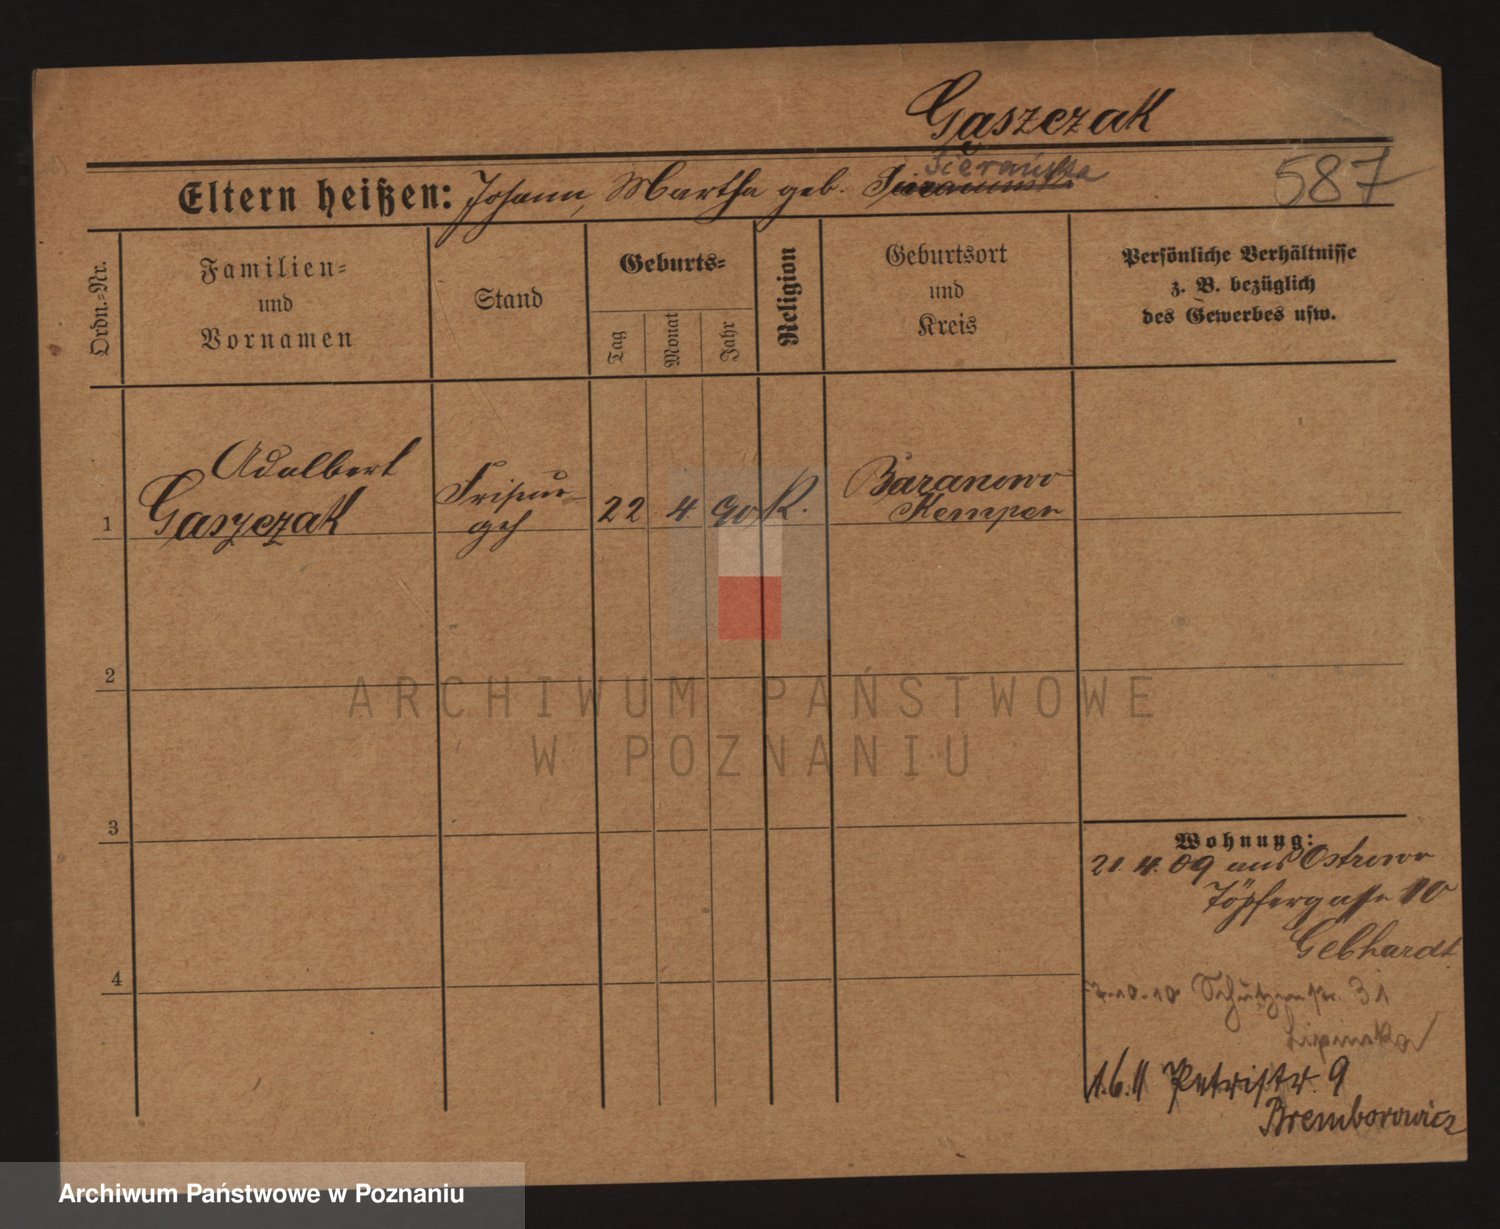 Gąszczak
Sierańska
587
Eltern heißen: Johann, Martha geb.
Ordn.-Nr.
Familien-
und
Vornamen
Stand
Geburts-
Tag
Monat
Jahr
Religion
Geburtsort
und
Kreis
Persönliche Verhältnisse
z. B. bezüglich
des Gewerbes usw.
Adalbert
1 Gaszczak
Friseur-
geh
22 4 90 K.
Baranowo
Kempen
2
3
4
ARCHIWUM PAŃSTWOWE
W POZNANIU
Wohnung:
21.4.09 aus Ostrowo
Töpfergasse 10
Gebhardt
10.10 Schützenstr. 31
Lipinska
1.6.11 Petristr. 9
Bremborowicz
Archiwum Państwowe w Poznaniu